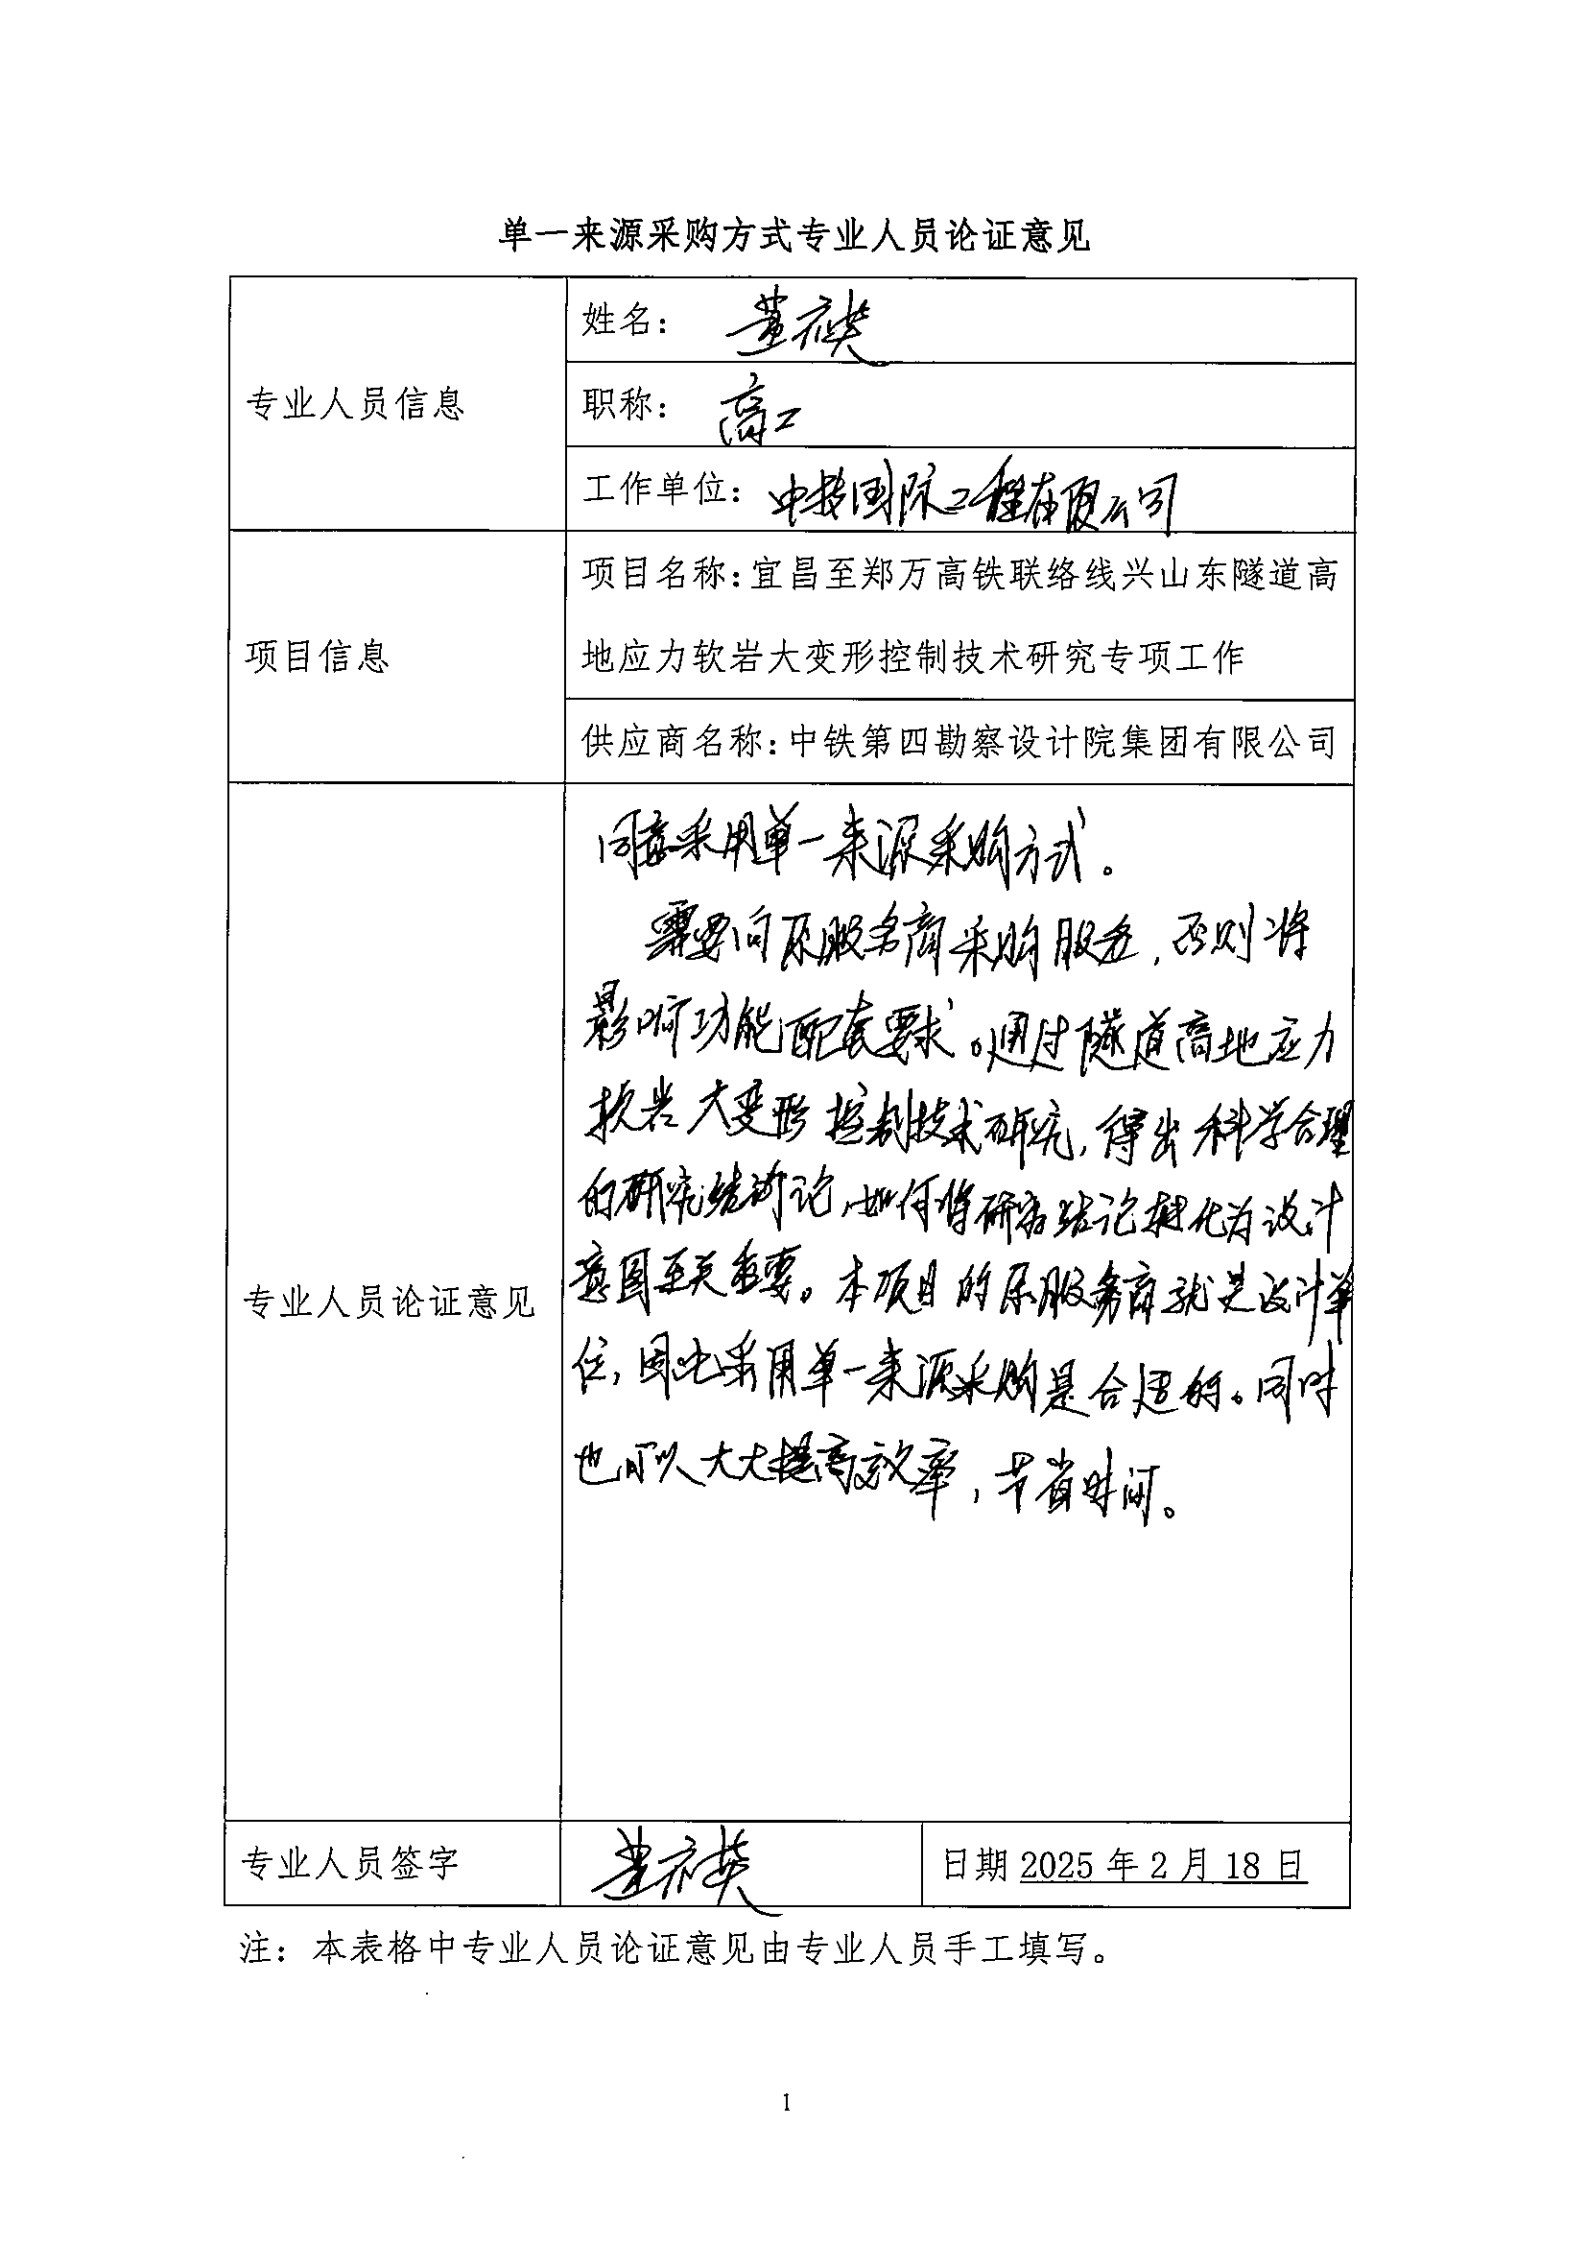 单一来源采购方式专业人员论证意见
专业人员信息
姓名： 董
职称： 高工
工作单位： 中技国际工程有限公司
项目信息
项目名称：宜昌至郑万高铁联络线兴山东隧道高
地应力软岩大变形控制技术研究专项工作
供应商名称：中铁第四勘察设计院集团有限公司
专业人员论证意见
同意采用单一来源采购方式。
需要向原服务商采购服务，否则将
影响功能配套要求。通过隧道高地应力
软岩大变形控制技术研究，得出科学合理
的研究结论，如何将研究结论转化为设计
意图至关重要。本项目的原服务商就是设计单
位，因此采用单一来源采购是合适的。同时
也可以大大提高效率，节省时间。
专业人员签字
董
日期 2025 年 2 月 18 日
注：本表格中专业人员论证意见由专业人员手工填写。
1